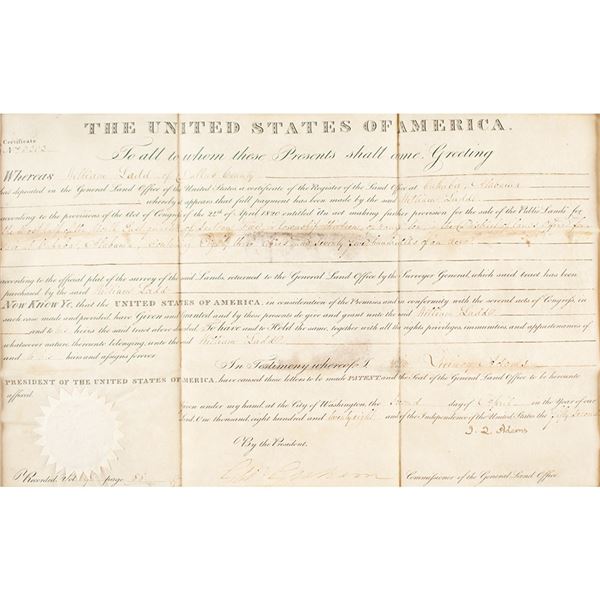 THE UNITED STATES OF AMERICA.
Certificate
To all to whom these Presents shall come, Greeting
Whereas William Ladd of Dallas County
has deposited in the General Land Office of the United States, a certificate of the Register of the Land Office at Cahaba, Alabama
whereby it appears that full payment has been made by the said William Ladd
according to the provisions of the Act of Congress of the 24th of April 1820, entitled "An act making further provision for the sale of the Public Lands" for
according to the official plat of the survey of the said Lands, returned to the General Land Office by the Surveyor General, which said tract has been
purchased by the said William Ladd
Now Know Ye, that the UNITED STATES OF AMERICA, in consideration of the Premises and in conformity with the several acts of Congress, in
such case made and provided, have Given and Granted, and by these presents do give and grant unto the said William Ladd
and to his heirs the said tract above described. To have and to Hold the same, together with all the rights, privileges, immunities, and appurtenances of
whatsoever nature, thereunto belonging, unto the said William Ladd
and to his heirs and assigns forever
In Testimony whereof I, John Quincy Adams
PRESIDENT OF THE UNITED STATES OF AMERICA, have caused these letters to be made PATENT, and the Seal of the General Land Office to be hereunto
affixed.
Given under my hand, at the City of Washington, the second day of April in the Year of our
Lord, One thousand, eight hundred and twenty eight and of the Independence of the United States the fifty second
J. Q. Adams
By the President.
Recorded, Vol. page
Commissioner of the General Land Office